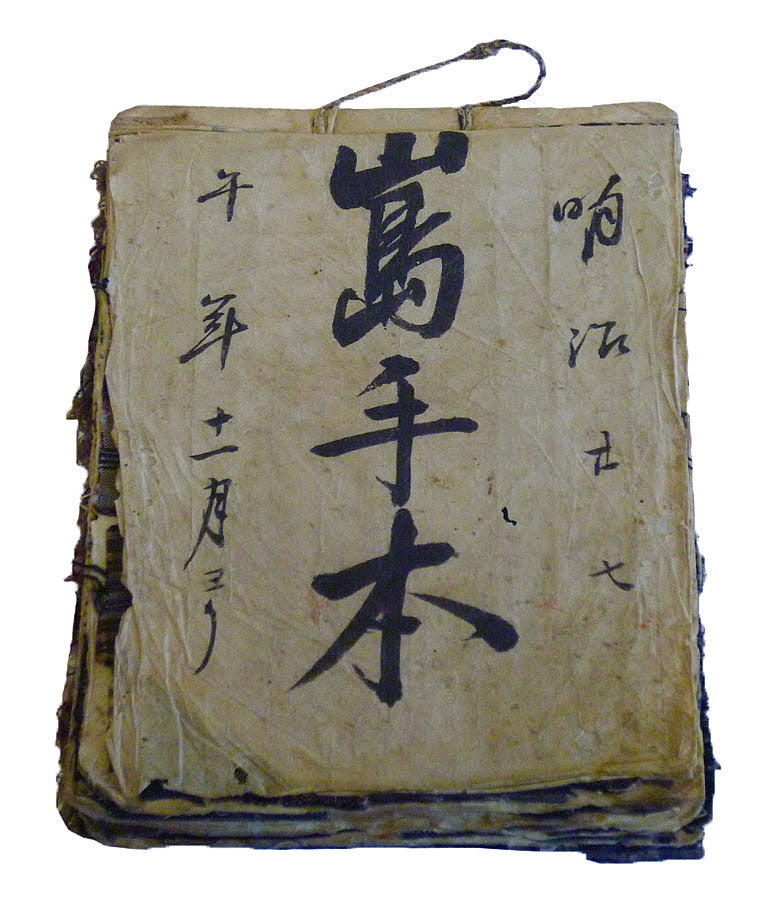 明治廿七
嶌手本
午年十一月ヨリ